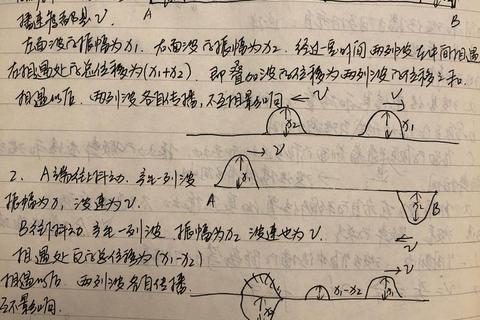 播速度都是 v. A B
左面波的振幅为x₁. 右面波的振幅为x₂. 经过一段时间两列波在中间相遇
在相遇处的总位移为(x₁+x₂). 即叠加波的位移为两列波的位移之和.
相遇以后. 两列波各自传播,不互相影响
v v
x₂ x₁
2. A端往上抖动. 产生一列波 v
振幅为x₁ 波速为v. x₁ A x₂ B
B往下抖动 产生一列波 振幅为x₂ 波速也为v. v
相遇处的总位移为(x₁-x₂)
相遇以后. 两列波各自传播 v
x₁-x₂
互不影响.